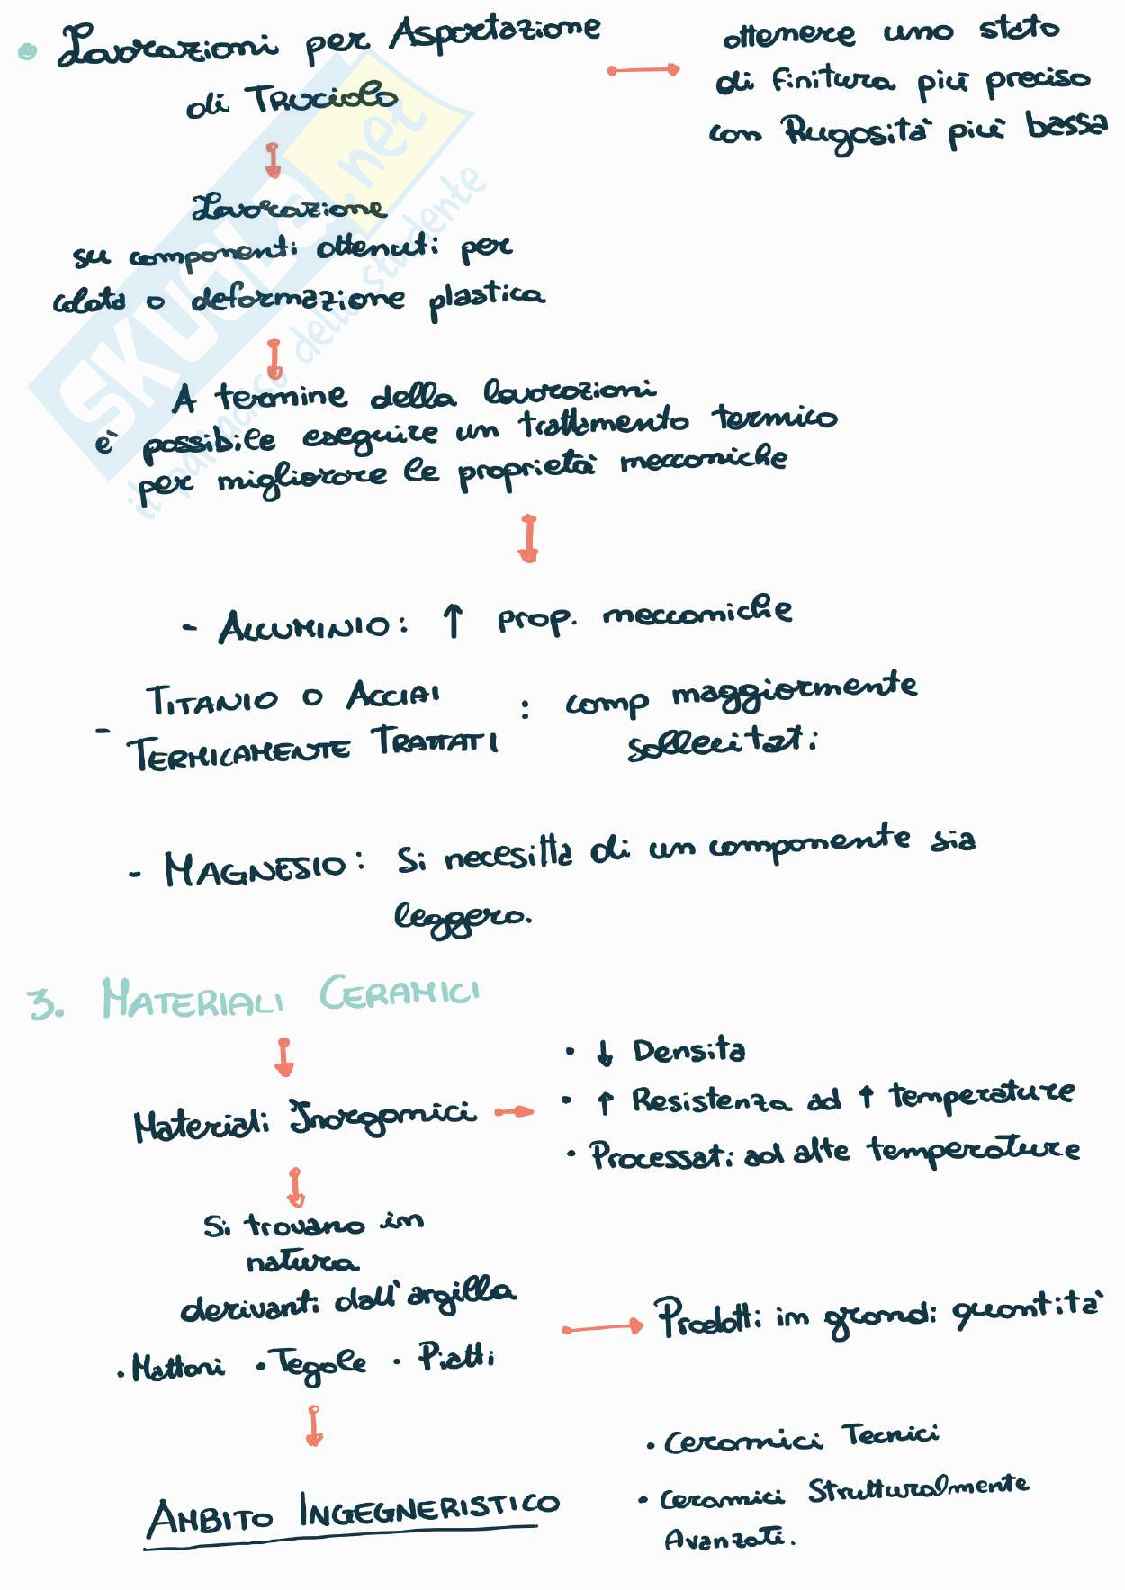 • Lavorazioni per Asportazione
di Truciolo
ottenere uno stato
di finitura più preciso
con Rugosità più bassa
Lavorazione
su componenti ottenuti per
colata o deformazione plastica
A termine della lavorazioni
è possibile eseguire un trattamento termico
per migliorare le proprietà meccaniche
- ALLUMINIO: ↑ prop. meccaniche
- TITANIO O ACCIAI
TERMICAMENTE TRATTATI : comp maggiormente
sollecitati
- MAGNESIO: Si necesitta di un componente sia
leggero.
3. MATERIALI CERAMICI
Materiali Inorganici
• ↓ Densità
• ↑ Resistenza ad ↑ temperature
• Processati ad alte temperature
Si trovano in
natura
derivanti dall'argilla
• Mattoni • Tegole • Piatti
Prodotti in grandi quantità
AMBITO INGEGNERISTICO
• Ceramici Tecnici
• Ceramici Strutturalmente
Avanzati.
SKUOLA.net
il paradiso dello studente